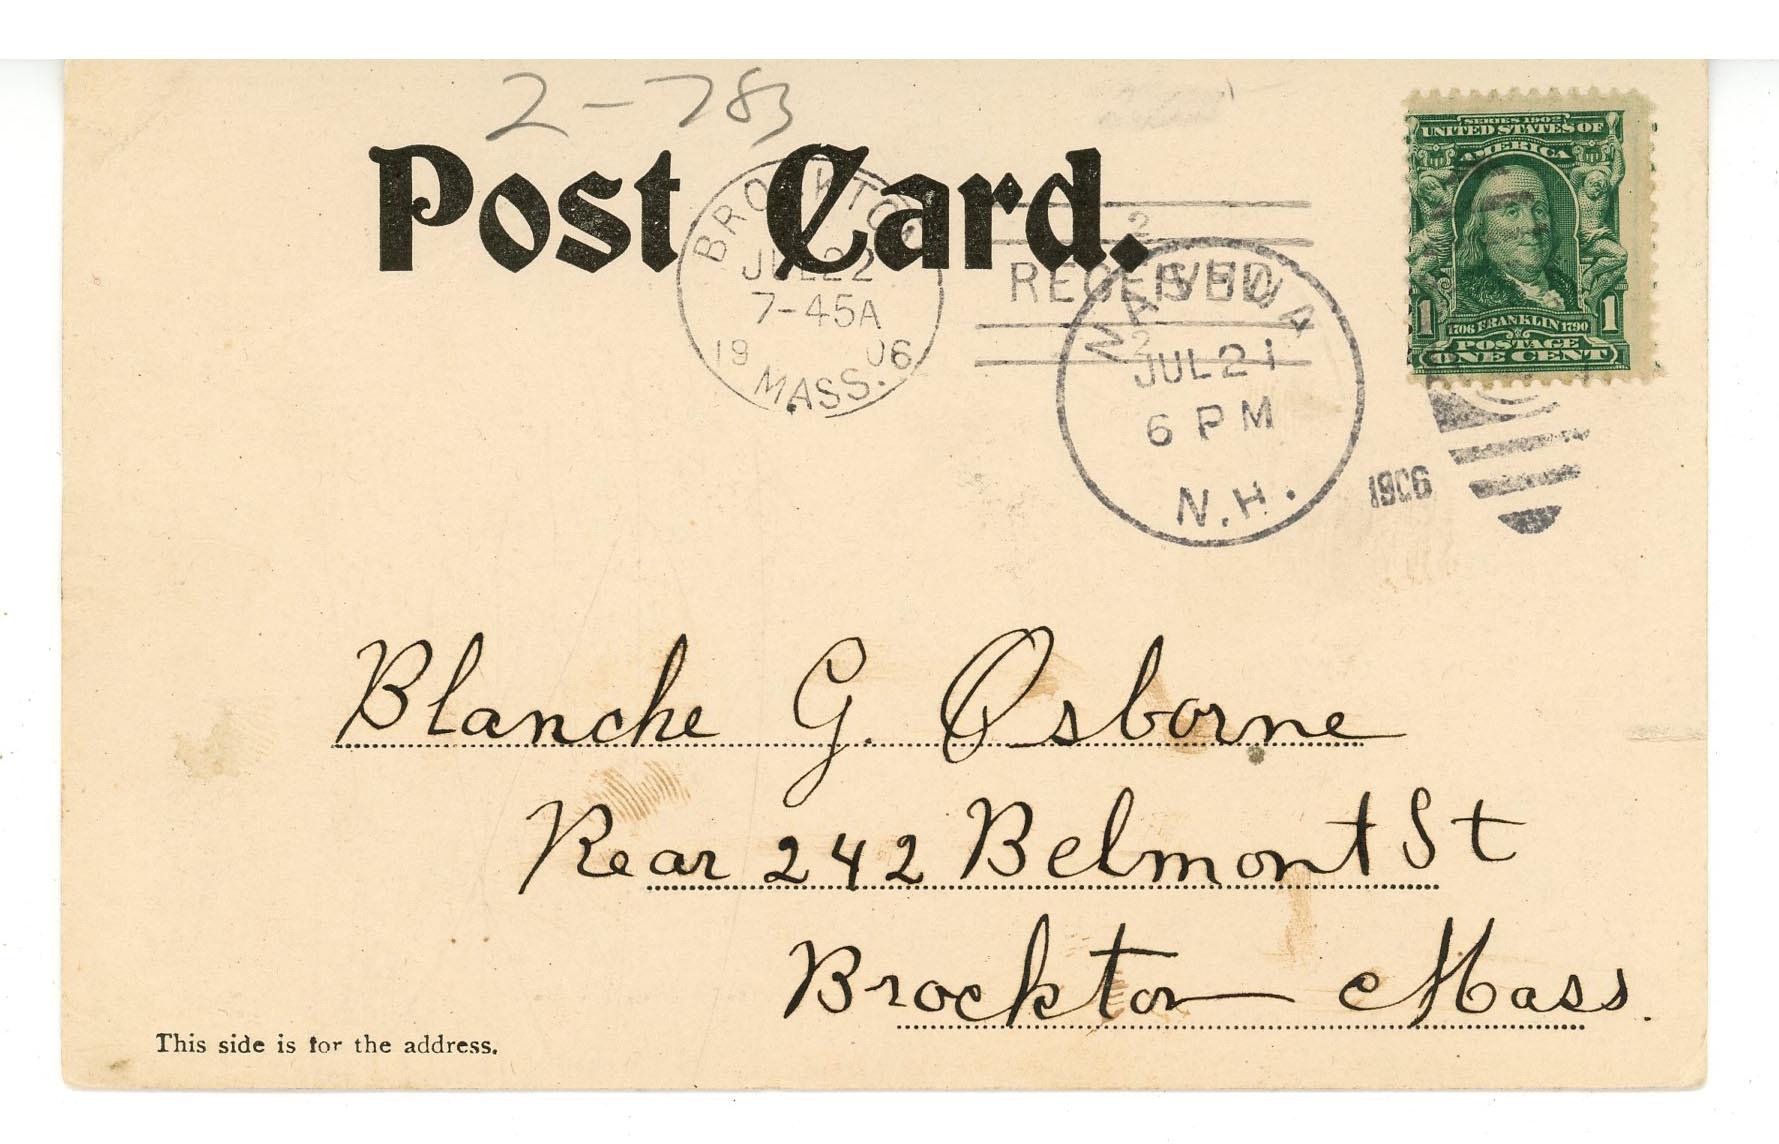 2-783
Post Card.
BROCKTON
JUL 22
7-45A
19 06
MASS.
2
RECEIVED
2
NASHUA
JUL 21
6 PM
N.H.
1906
SERIES 1902
UNITED STATES OF
AMERICA
1 1
1706 FRANKLIN 1790
POSTAGE
ONE CENT
Blanche G. Osborne
Rear 242 Belmont St
Brockton Mass.
This side is for the address.